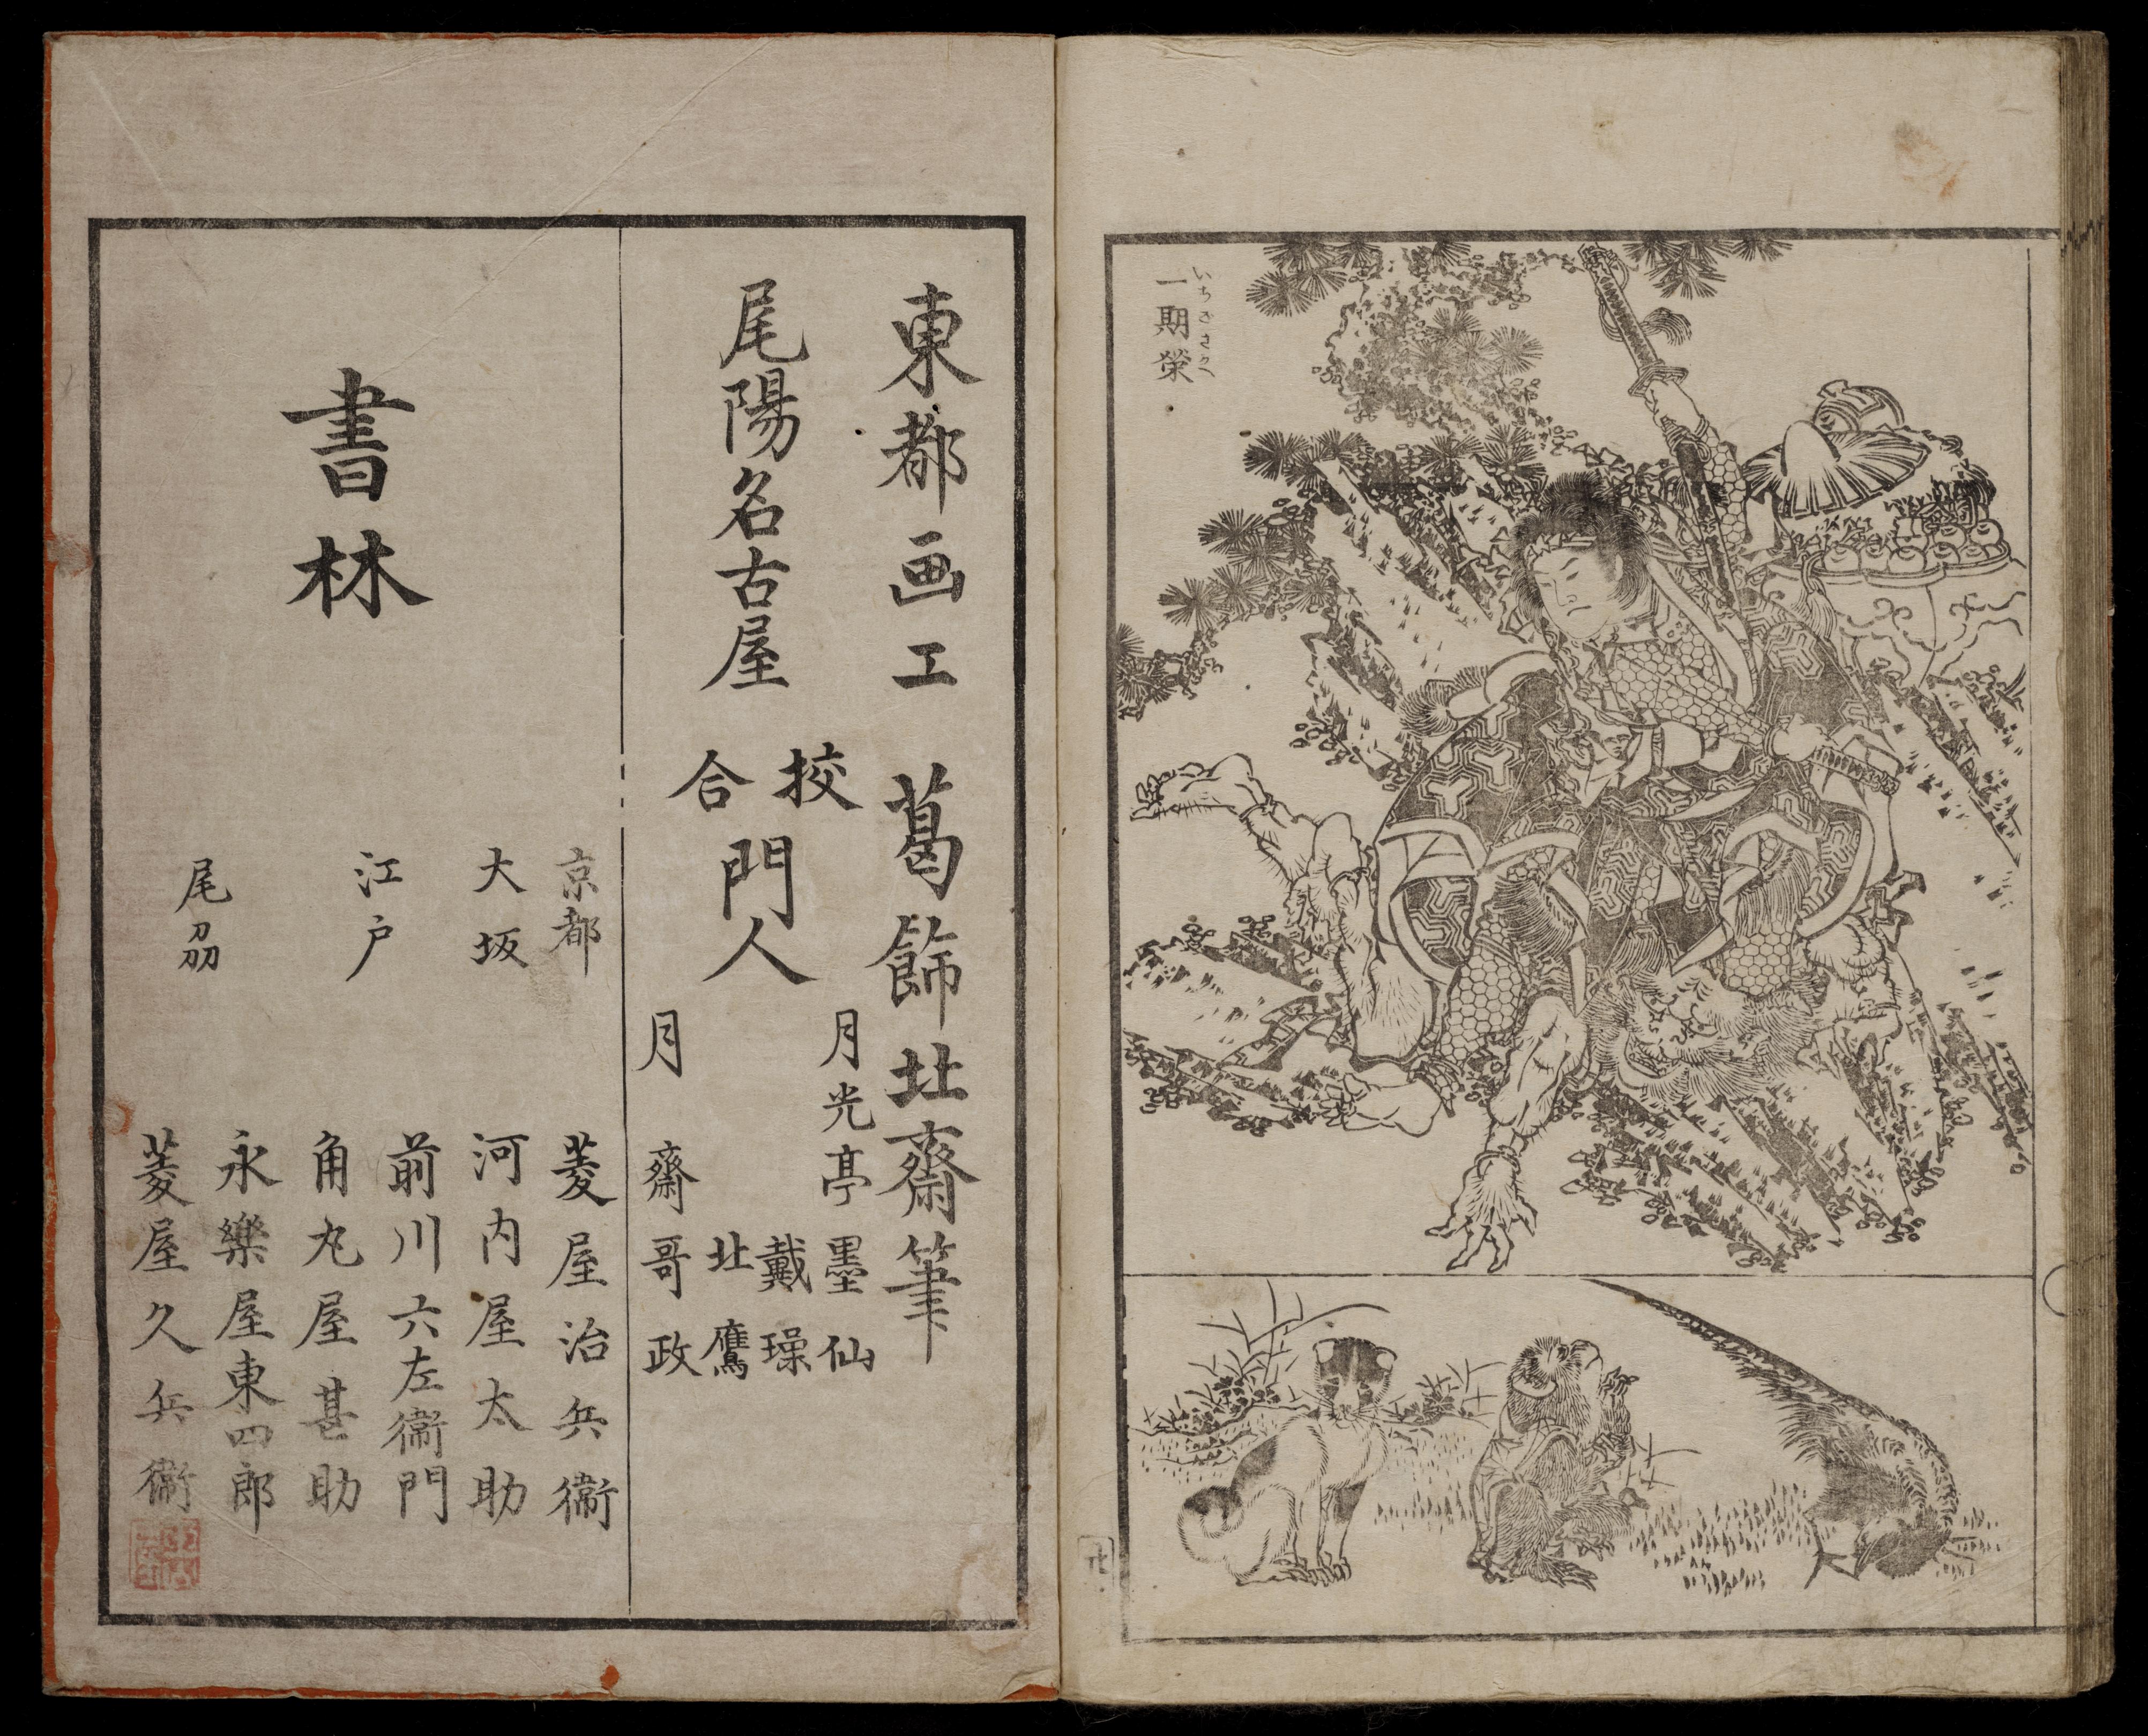 一期榮
いちごさかへ
東都画工 葛飾北齋筆
尾陽名古屋
挍合
門人
月光亭墨仙
戴璪
北鷹
月齋哥政
書林
京都
菱屋治兵衞
大坂
河内屋太助
前川六左衞門
江戸
角丸屋甚助
永樂屋東四郎
尾刕
菱屋久兵衞